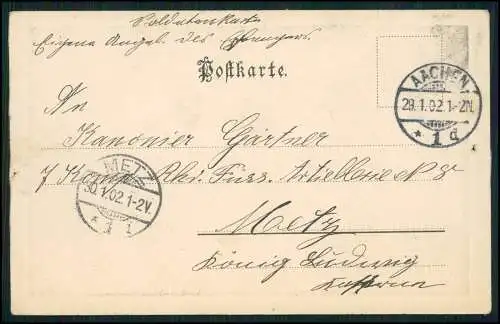 Soldatenkarte
Eigene Angel. des Empfängers
Postkarte.
An
Kanonier Gärtner
7 Komp. Rhn. Fuss. Artillerie No 8
Metz
König Ludwig
Kaserne
AACHEN
29.1.02.1-2N.
* 1 d
METZ
30.1.02.1-2V.
* 1